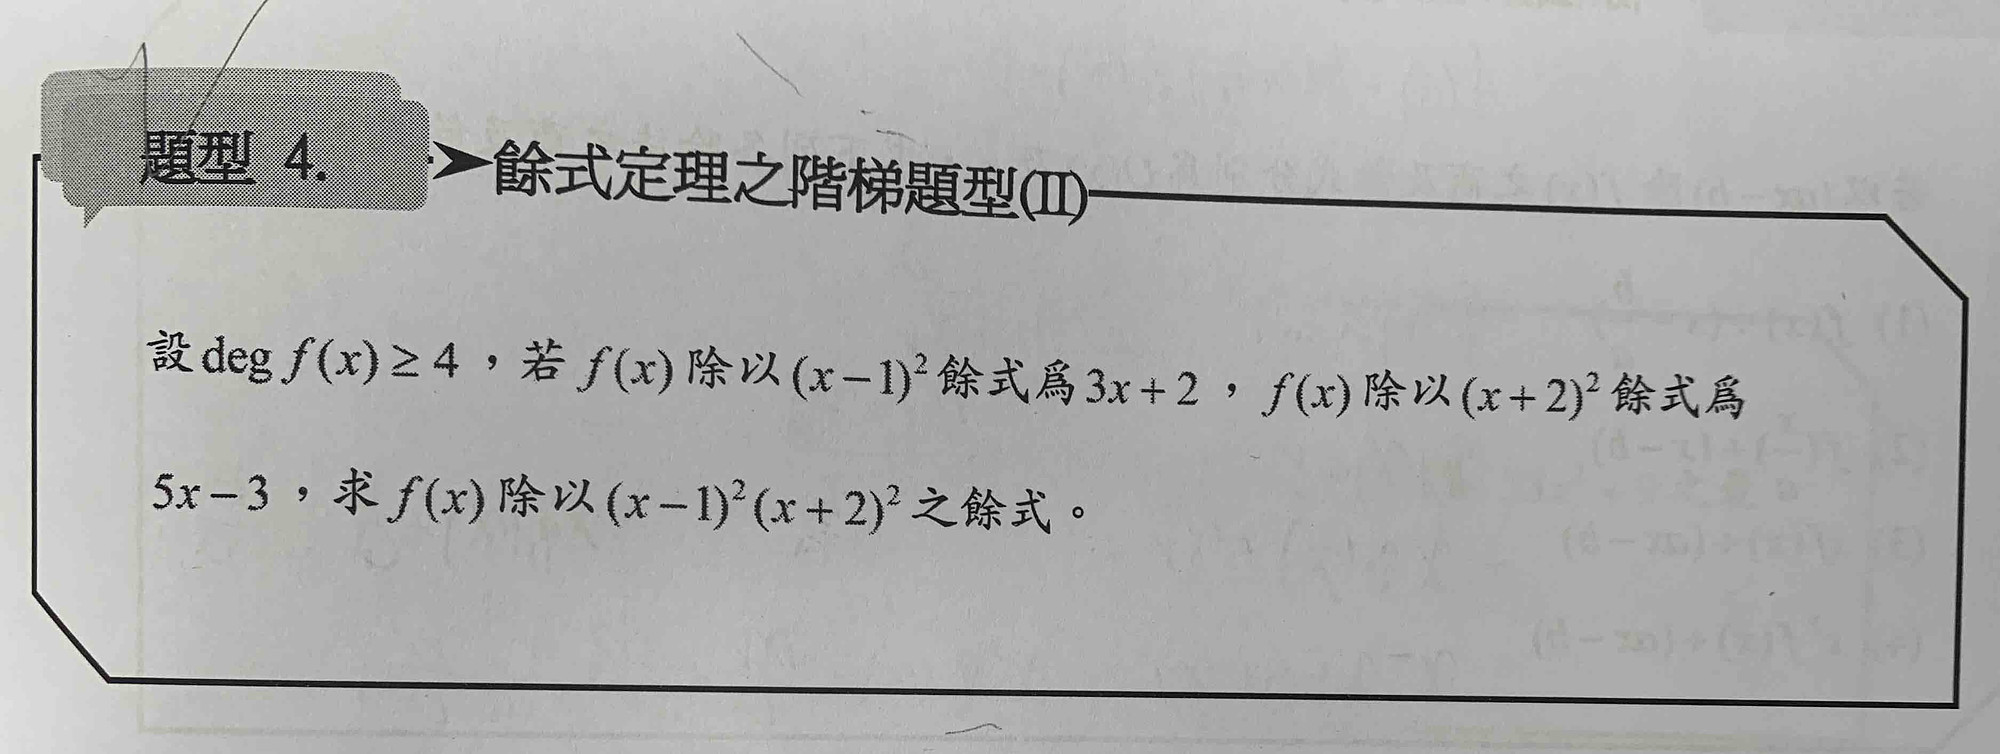 題型 4.
餘式定理之階梯題型(II)
設 deg f(x) ≥ 4，若 f(x) 除以 (x−1)² 餘式爲 3x+2，f(x) 除以 (x+2)² 餘式爲
5x−3，求 f(x) 除以 (x−1)²(x+2)² 之餘式。